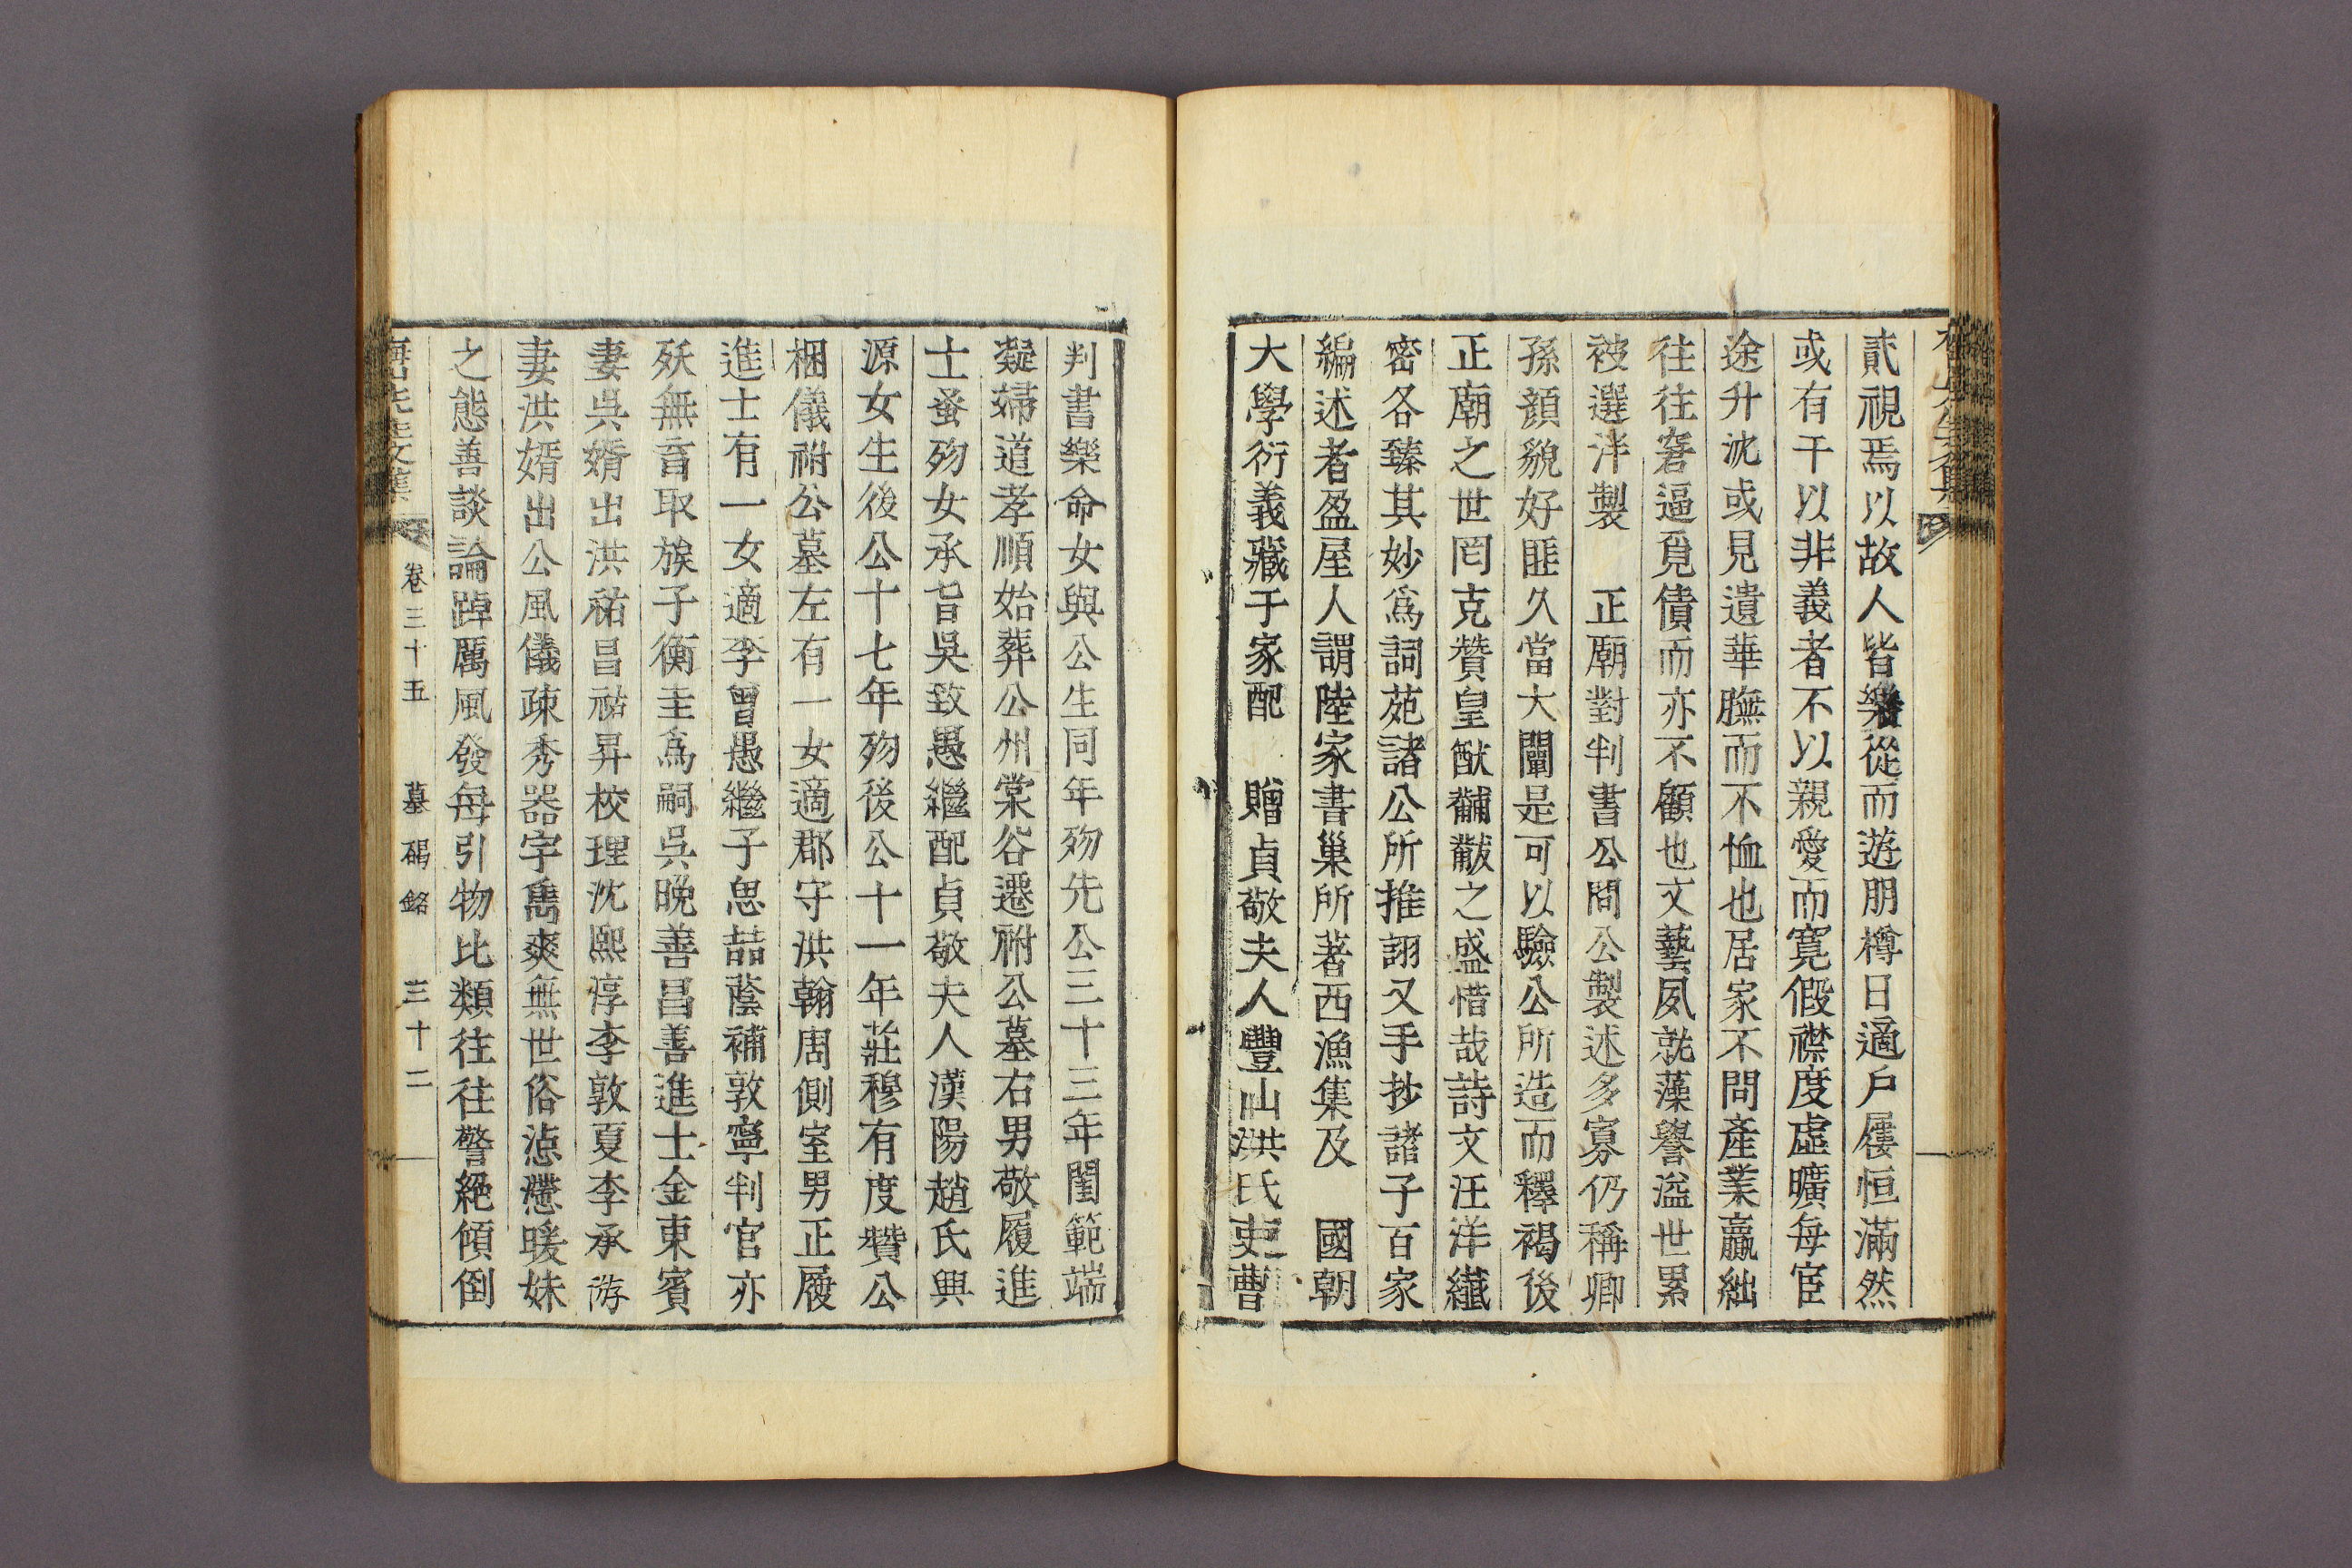 貳視焉以故人皆樂從而遊朋樽日適戶屨恒滿然
或有干以非義者不以親愛而寬假襟度虛曠每宦
途升沈或見遺華膴而不恤也居家不問產業贏絀
往往窘逼覓債而亦不顧也文藝夙就藻譽溢世累
被選泮製 正廟對判書公問公製述多寡仍稱卿
孫顔貌好匪久當大闡是可以驗公所造而釋褐後
正廟之世罔克贊皇猷黼黻之盛惜哉詩文汪洋纖
密各臻其妙爲詞苑諸公所推詡又手抄諸子百家
編述者盈屋人謂陸家書巢所著西漁集及 國朝
大學衍義藏于家配 贈貞敬夫人豐山洪氏吏曹
判書樂命女與公生同年歿先公三十三年閨範端
凝婦道孝順始葬公州棠谷遷祔公墓右男敬履進
士蚤歿女承旨吳致愚繼配貞敬夫人漢陽趙氏興
源女生後公十七年歿後公十一年莊穆有度贊公
梱儀祔公墓左有一女適郡守洪翰周側室男正履
進士有一女適李曾愚繼子思喆蔭補敦寧判官亦
殀無育取族子衡圭爲嗣吳晩善昌善進士金東賓
妻吳婿出洪祐昌祐昇校理沈熙淳李敦夏李承游
妻洪婿出公風儀疎秀器宇雋爽無世俗惉懘暖姝
之態善談論踔厲風發每引物比類往往警絕傾倒
卷三十五 墓碣銘 三十二